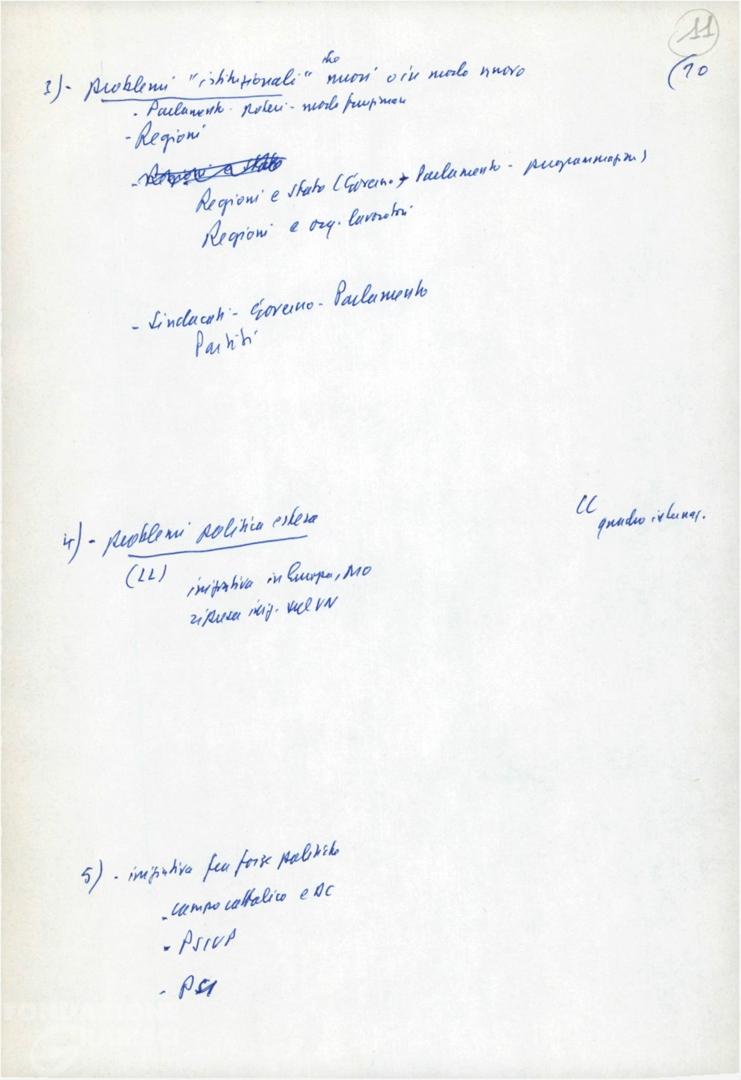 11
(10
3) - problemi "istituzionali" nuovi o in modo nuovo
- Parlamento - poteri - modo funzionare
- Regioni
- Regioni e Stato
Regioni e Stato (Governo + Parlamento - programmazione)
Regioni e org. lavoratori
- Sindacati - Governo - Parlamento
Partiti
4) - problemi politica estera
CC
quadro internaz.
(LL)
iniziativa in Europa, MO
ripresa iniz. sul VN
5) - iniziativa fra forze politiche
- campo cattolico e DC
- PSIUP
- PSI
FONDAZIONE